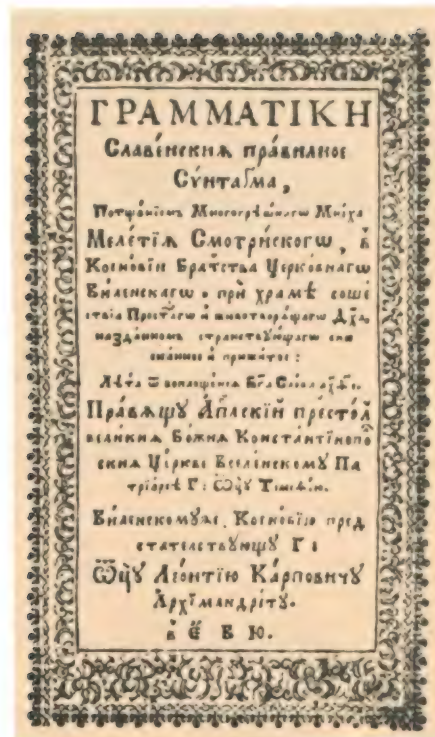 ГРАММАТІКИ
Славе́нския пра́вилное
Сѵ́нтаґма,
Потща́нїемъ Многогрѣ́шнагѡ Мни́ха
Меле́тїѧ Смотри́скогѡ, в
Коено́вїи Бра́тства Церко́внагѡ
Ви́ленскагѡ, при́ хра́мѣ соше́
ствїѧ Прест҃агѡ и҆ животворѧ́щагѡ Дх҃а,
назда́нномъ, стра́нствꙋющагѡ
Лѣ́та ѿ воплоще́нїѧ Бг҃а Сло́ва
Пра́вѧщꙋ А҆пⷭ҇лскїй престо́лъ
вели́кїѧ Бо́жїѧ Константїнопо
скїѧ Це́ркве Вселе́нскомꙋ Па
трїа́рсѣ Г: Ѿцꙋ̀ Тїмоѳе́ю.
Ви́ленскомꙋже, Коено́вїю пред
ста́телствꙋющꙋ Г:
Ѿцꙋ̀ Лео́нтїю Ка́рповичꙋ
А҆рхїмандрі́тꙋ.